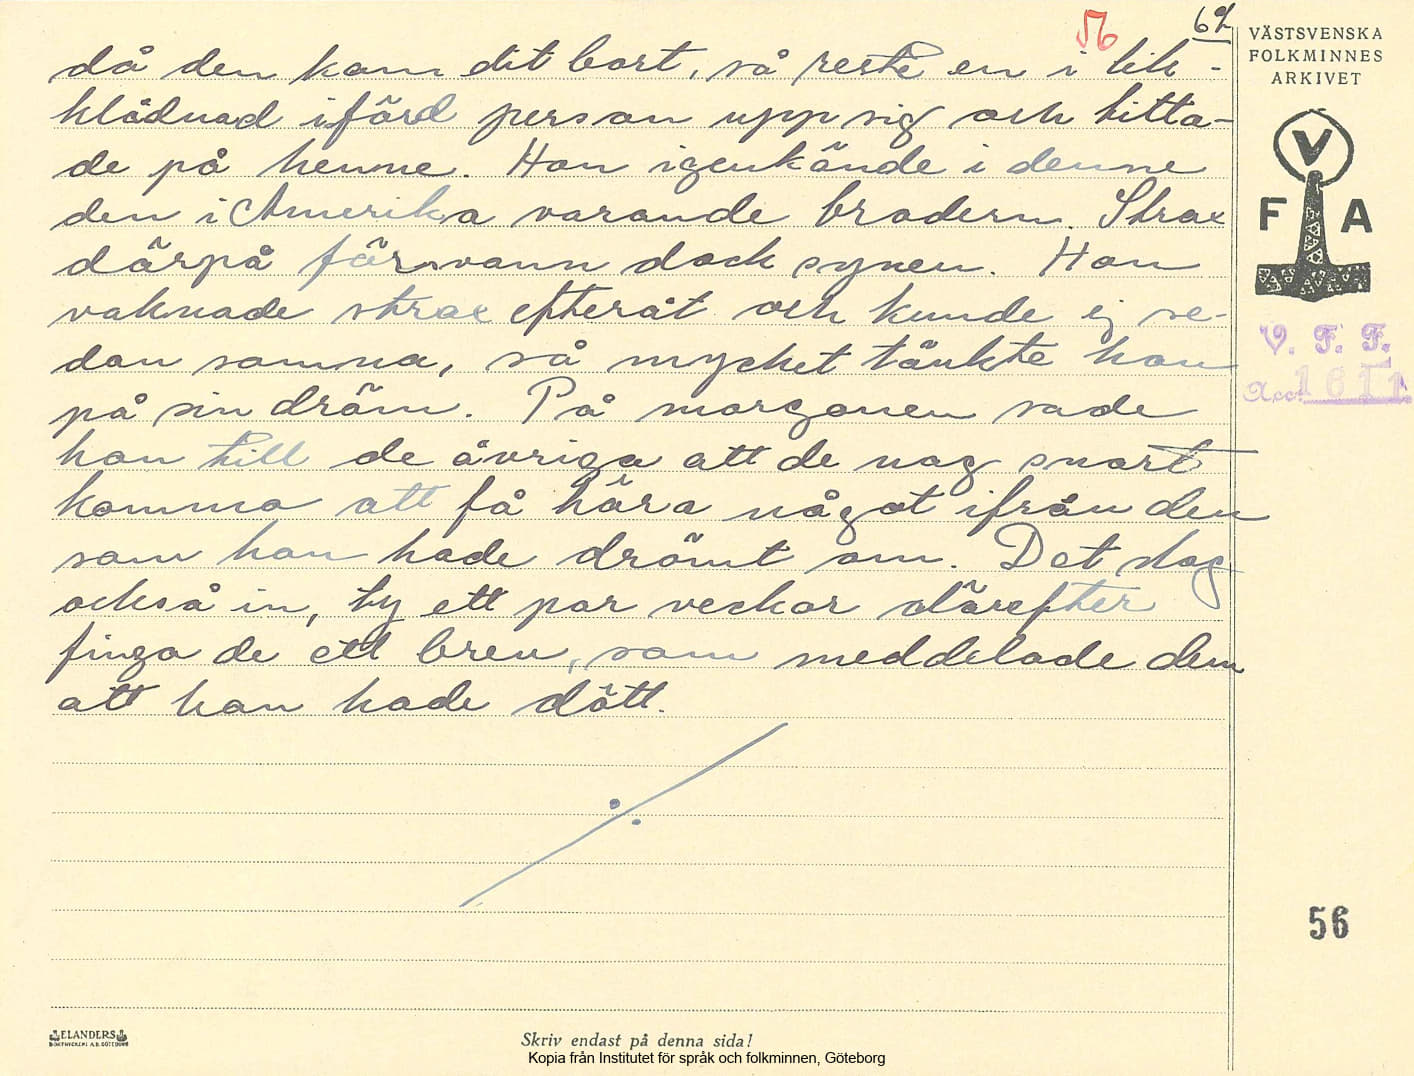 56
62
då den kom dit bort, så reste en i lik-
klädnad iförd person upp sig och titta-
de på henne. Hon igenkände i denne
den i Amerika varande brodern. Strax
därpå försvann dock synen. Hon
vaknade strax efteråt och kunde ej se-
dan somna, så mycket tänkte hon
på sin dröm. På morgonen sade
hon till de övriga att de nog snart
komma att få höra något ifrån den
som hon hade drömt om. Det slog
också in, ty ett par veckor därefter
finga de ett brev, som meddelade dem
att han hade dött.
VÄSTSVENSKA
FOLKMINNES
ARKIVET
V
F A
V. F. F.
Acc. 1611
56
ELANDERS
BOKTRYCKERI A.B. GÖTEBORG
Skriv endast på denna sida!
Kopia från Institutet för språk och folkminnen, Göteborg